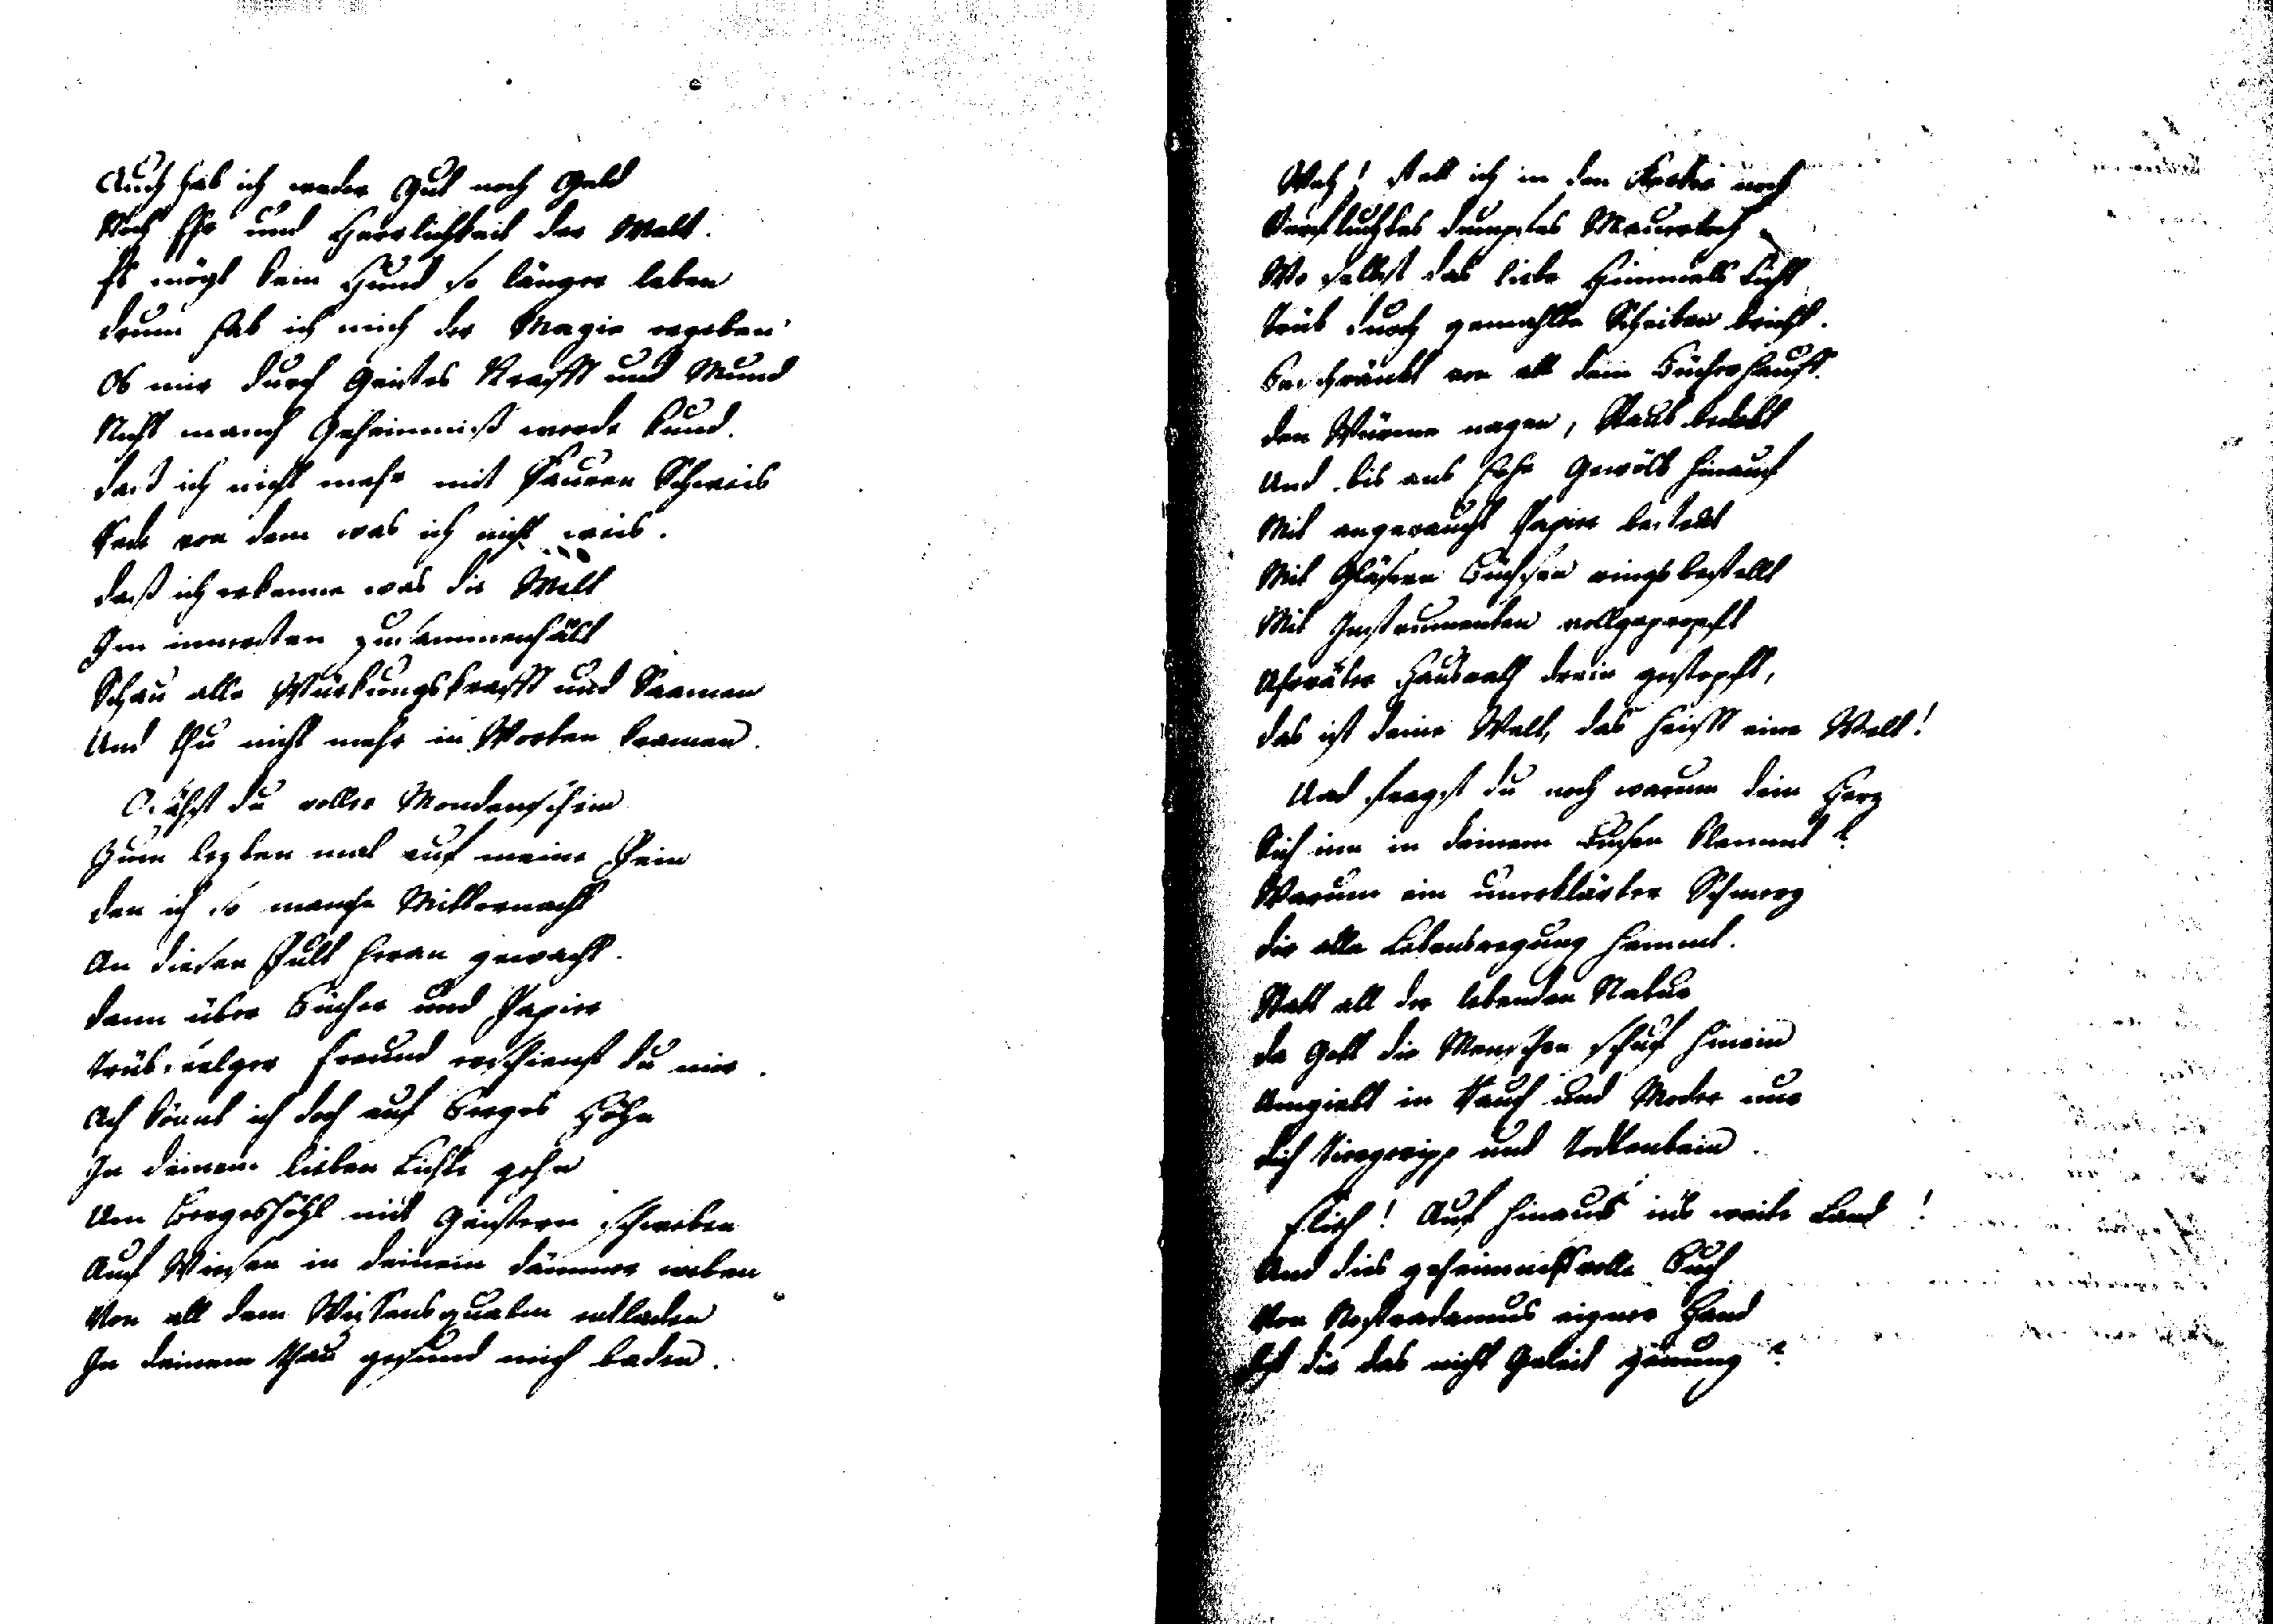 Auch hab ich weder Gut noch Geld
Noch Ehr und Herrlichkeit der Welt.
Es mögt kein Hund so länger leben
drum hab ich mich der Magie ergeben
Ob mir durch Geistes Krafft und Mund
Nicht manch Geheimniß werde kund.
daß ich nicht mehr mit sauren Schweis
Rede von dem was ich nicht weis.
daß ich erkenne was die Welt
Im innersten zusammenhält
Schau alle Würkungskrafft und Saamen
Und thu nicht mehr in Worten kramen.
O sähst du voller Mondenschein
Zum lezten mal auf meine Pein
den ich so manche Mitternacht
An diesen Pult heran gewacht.
dann über Bücher und Papier
Trübseelger Freund erschienst du mir.
Ach könnt ich doch auf Berges Höhn
In deinem lieben Lichte gehn
Um Bergeshöhl mit Geistern schweben
Auf Wiesen in deinem dämmer weben
Von all dem Wissensqualm entladen
In deinem Thau gesund mich baden.
Weh! steck ich in den Kerker noch
Verfluchtes dumpfes Mauerloch
Wo selbst das liebe Himmels Licht
Trüb durch gemahlte Scheiben bricht.
Beschränckt von all dem Bücherhauff.
den Würme nagen, Staub bedekt
Und bis ans hohe Gewölb hinauf
Mit angeraucht Papier besteckt
Mit Gläsern Büchsen rings bestellt
Mit Instrumenten vollgepropft
Uhrväter Hausrath drein gestopft,
das ist deine Welt, das heisst eine Welt!
Und fragst du noch warum dein Herz
Sich inn in deinem Busen klemmt?
Warum ein unerklärter Schmerz
dir alle Lebensregung hemmt.
Statt all der lebenden Natur
da Gott die Menschen schuf hinein
Umgiebt in Rauch und Moder nur
dich Tiergeripp und Todtenbein.
Flieh! Auf hinaus ins weite Land!
Und dies geheimnißvolle Buch
Von Nostradamus eigner Hand
Ist dir das nicht Geleit genung?